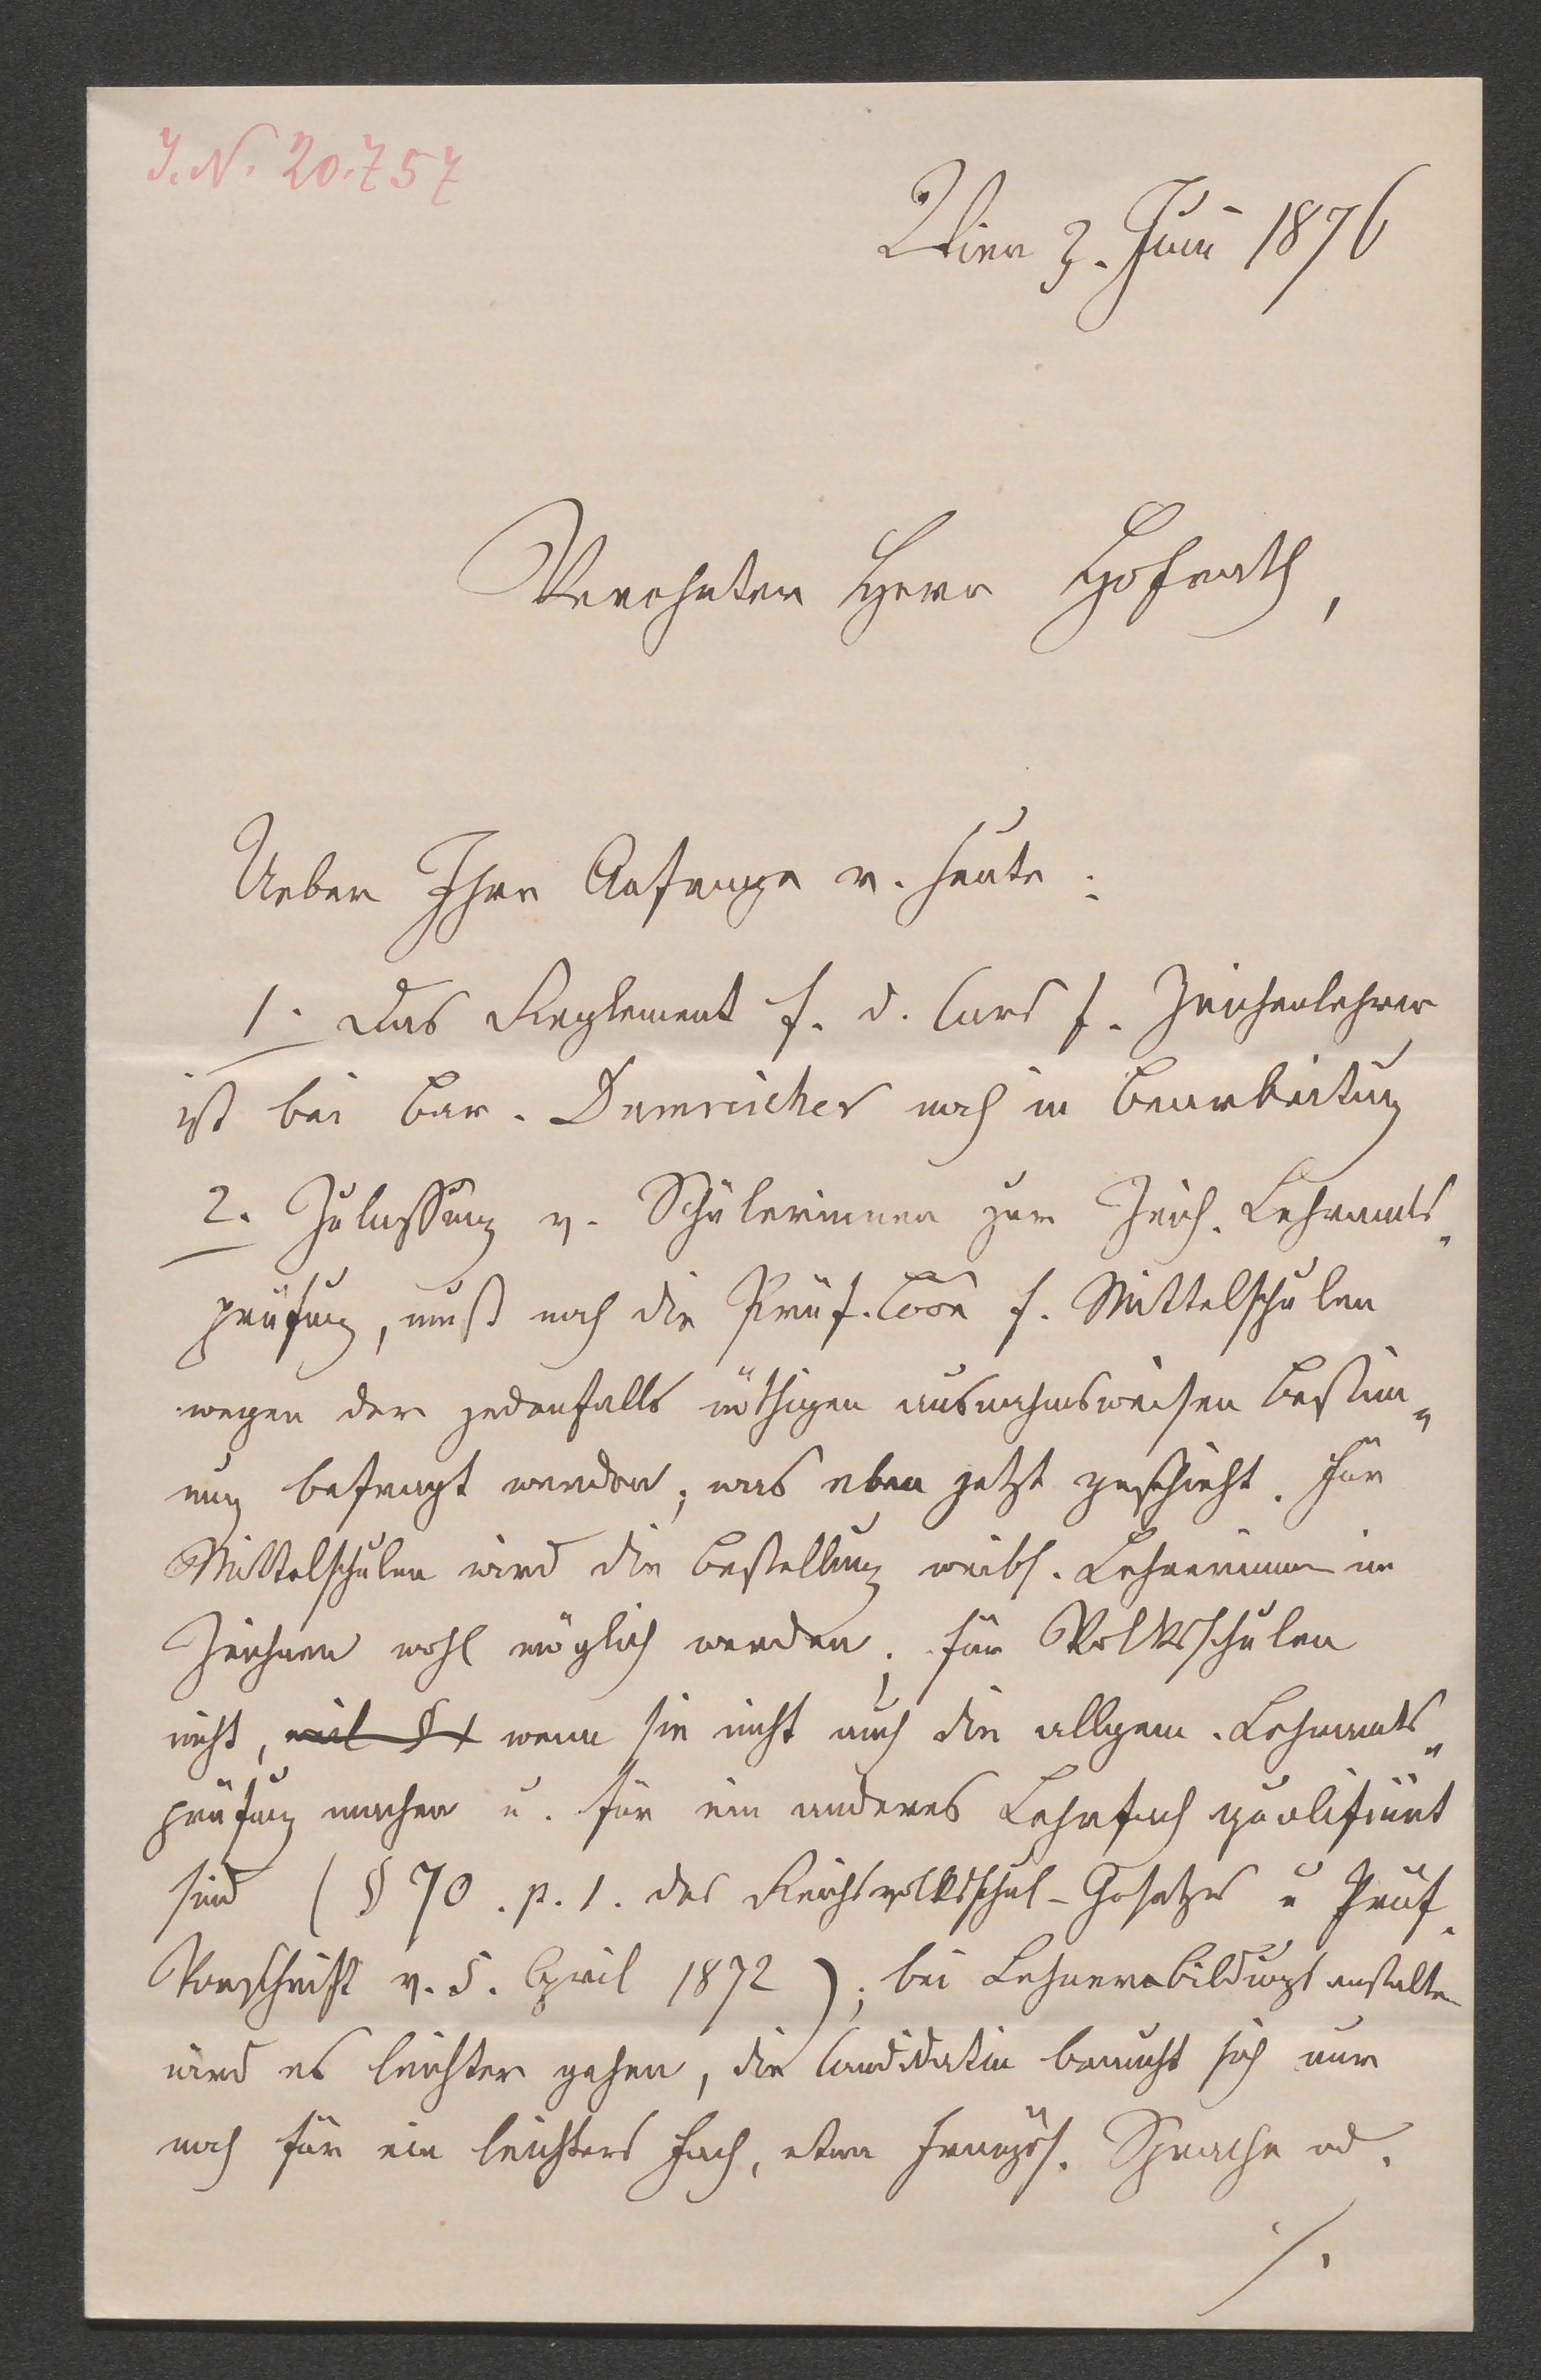 I.N. 20.757
Wien 3. Juni 1876
Verehrter Herr Hofrath,
Ueber Ihre Anfrage v. heute:
1. Das Reglement f. d. Curs f. Zeichenlehrer
ist bei Bar. Dumreicher noch in Bearbeitung
2. Zulassung v. Schülerinnen zur Zeich. Lehramts„
prüfung, muß noch die Prüf. Coōn f. Mittelschulen
wegen der jedenfalls nöthigen ausnahmsweisen Bestim„
ung befragt werden; was eben jetzt geschieht. Für
Mittelschulen wird die Bestellung weibl. Lehrerinnen im
Zeichnen wohl möglich werden; für Volksschulen
nicht, weil § 1 wenn sie nicht auch die allgem. Lehramts„
prüfung machen u. für ein anderes Lehrfach qualifizirt
sind (§ 70. p. 1. des Reichsvolksschul-Gesetzes u Prüf.
Vorschrift v. 5. April 1872); bei Lehrerbildungsanstalten
wird es leichter gehen, die Candidatin braucht sich nur
noch für ein leichters Fach, etwa französ. Sprache od.
./.